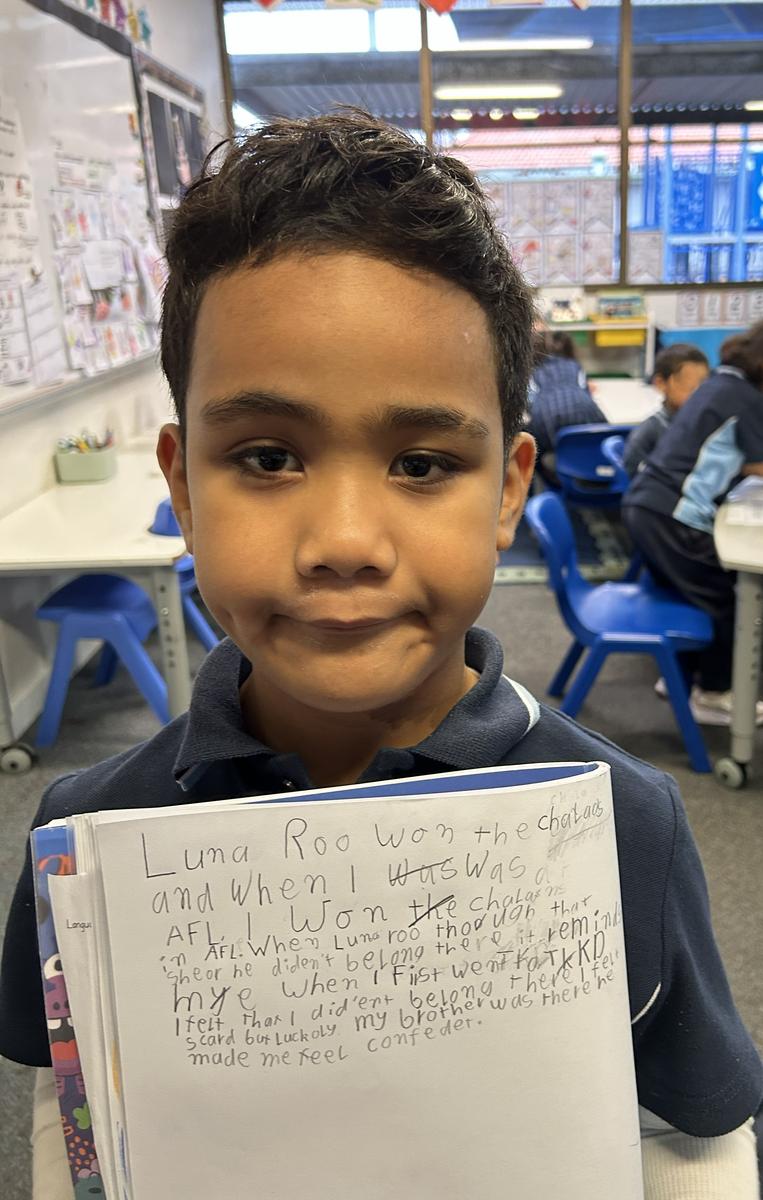 Luna Roo won the chalans
and when I was was at
AFL. I won the chalans
in AFL. When Luna roo thorugh that
she or he diden't belong there it remind
mye when I First went to TKD
I felt that I did'ent belong there I felt
scard but Luckoly my brother was there he
made me feel confeder.
Langu